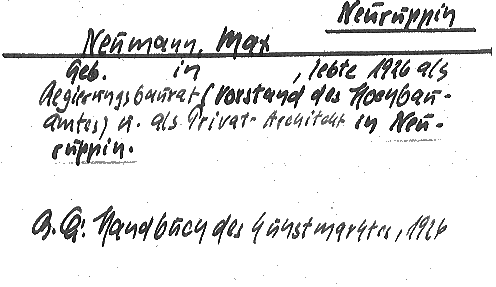 Neuruppin
Neumann, Max
Geb. in , lebte 1926 als
Regierungsbaurat (Vorstand des Hochbau-
amtes) u. als Privat-Architekt in Neu-
ruppin.
a. a: Handbuch des Kunstmarktes, 1926